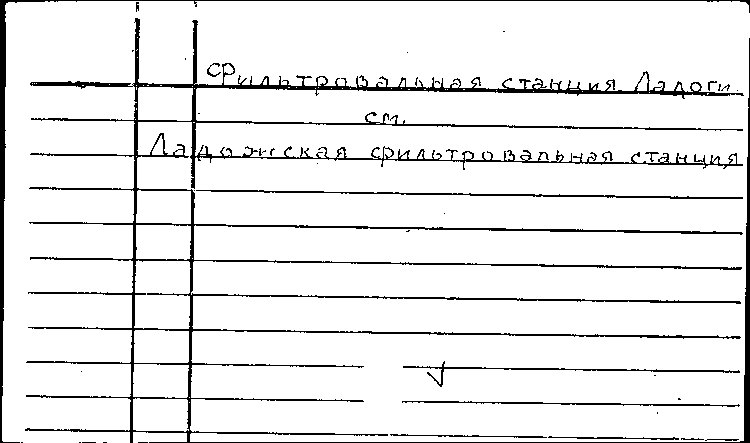 Фильтровальная станция Ладоги
см.
Ладожская фильтровальная станция